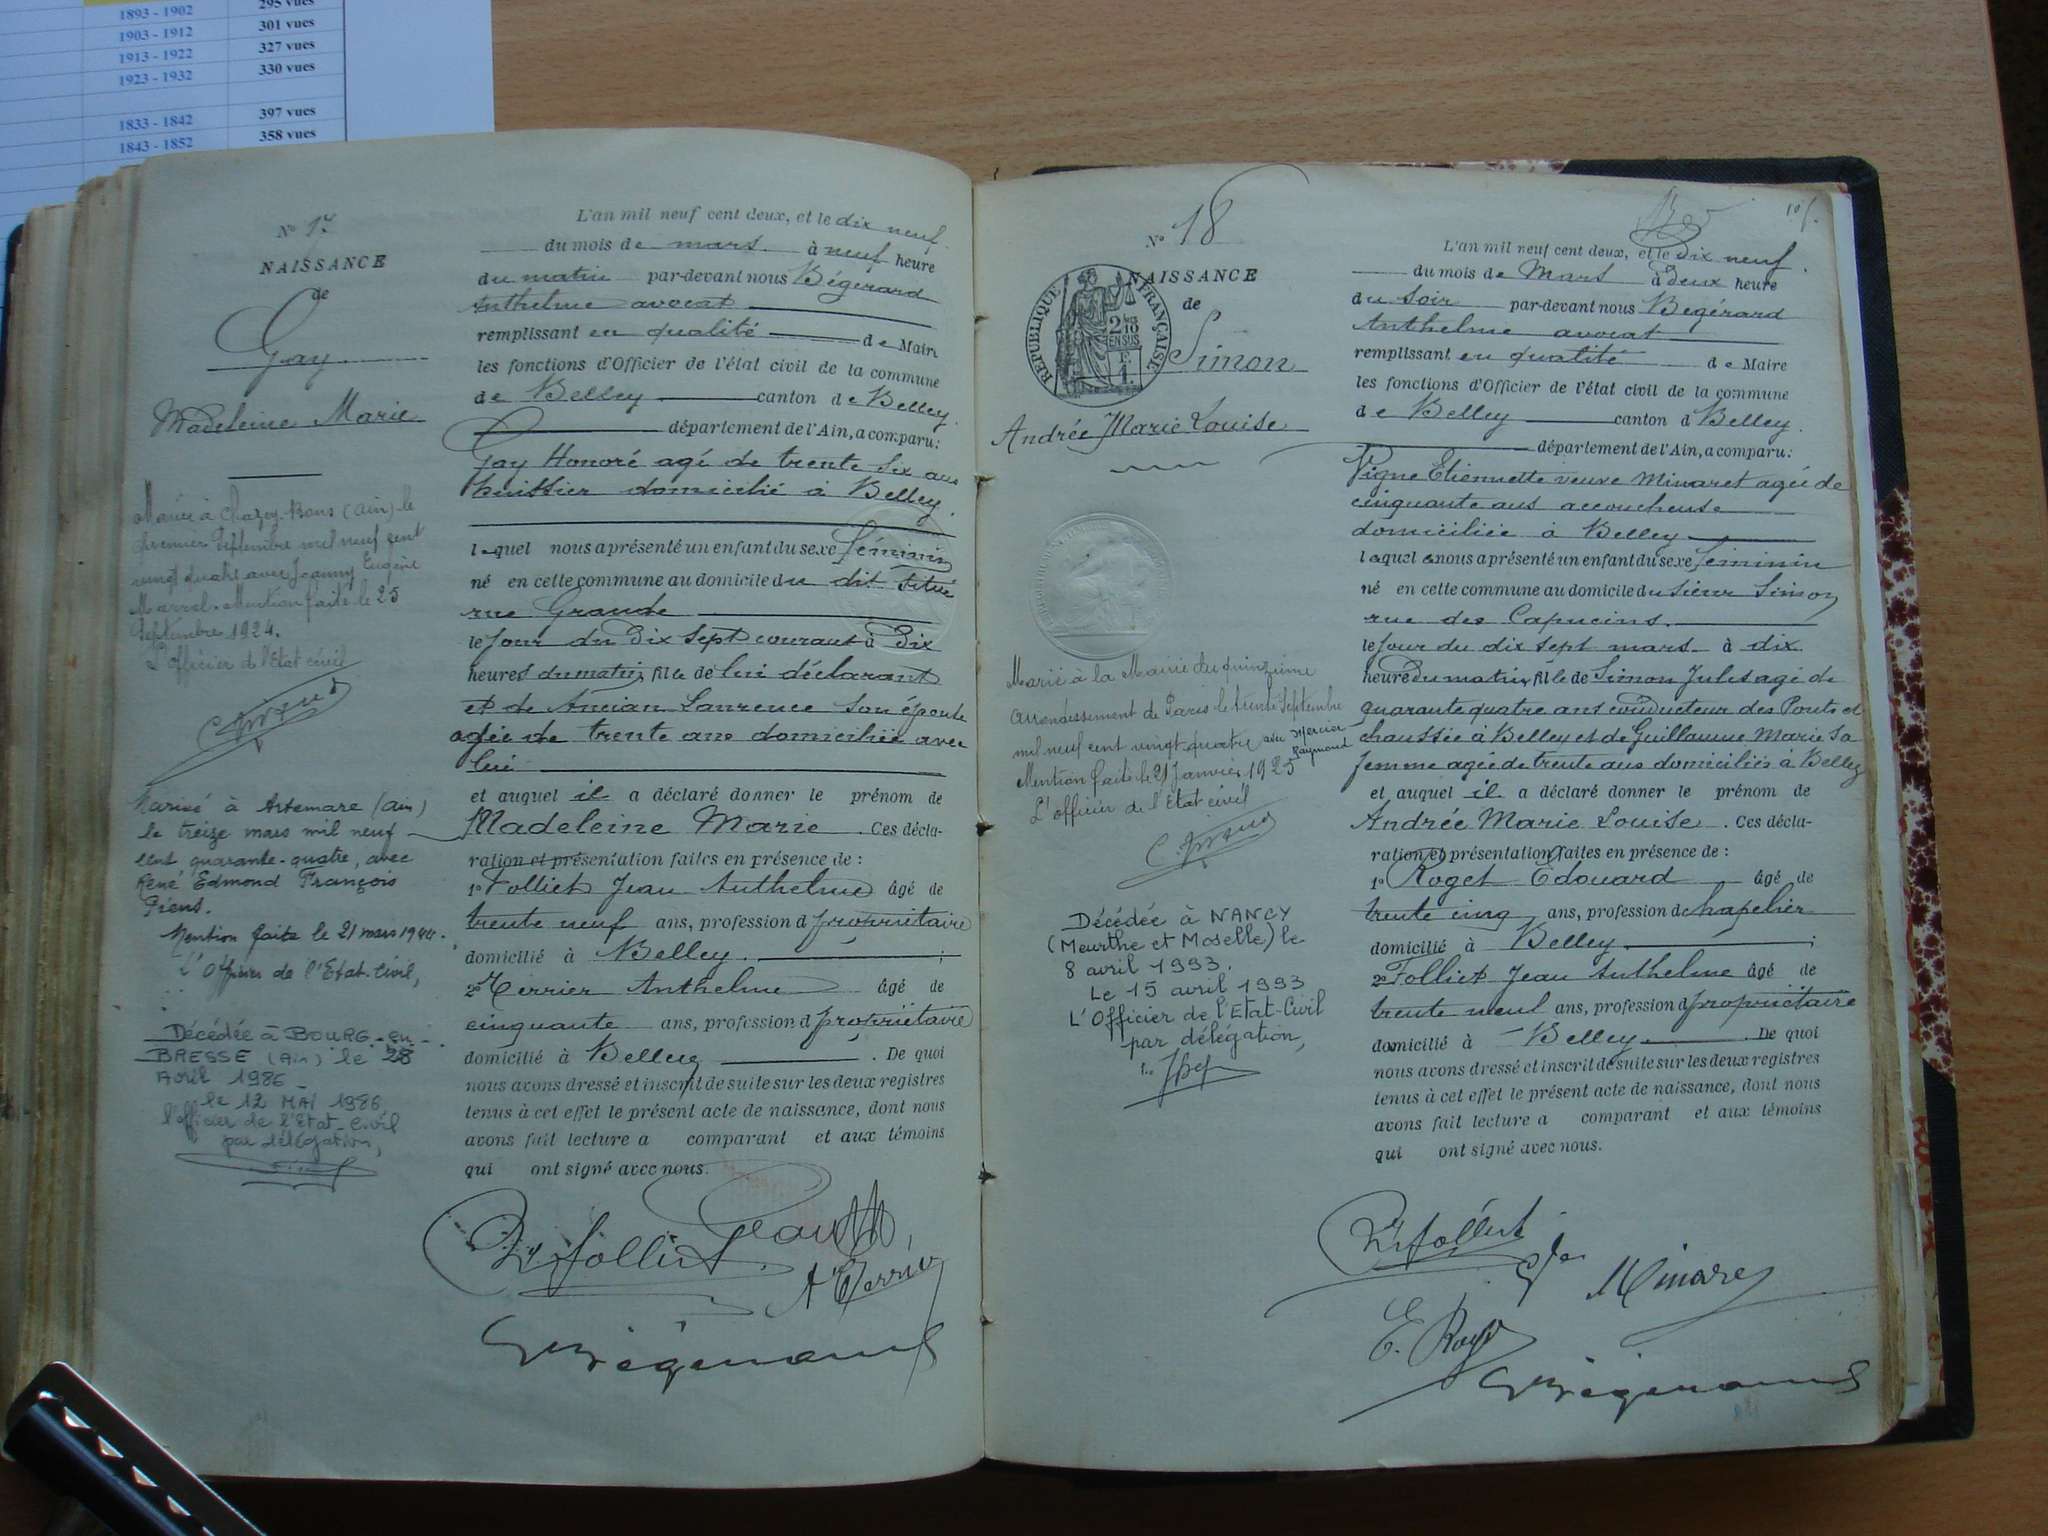 1893 - 1902 295 vues
1903 - 1912 301 vues
1913 - 1922 327 vues
1923 - 1932 330 vues
1833 - 1842 397 vues
1843 - 1852 358 vues
N° 17
NAISSANCE
de
Gay
Madeleine Marie
Mariée à Chazey-Bons (Ain) le
premier Septembre mil neuf cent
vingt quatre avec Joanny Eugène
Marrel. Mention faite le 25
Septembre 1924.
L'officier de l'Etat civil
Mariée à Artemare (Ain)
le treize mars mil neuf
cent quarante-quatre, avec
René Edmond François
Piens.
Mention faite le 21 mars 1944.
L'Officier de l'Etat-Civil,
Décédée à BOURG-en-
BRESSE (Ain) le 28
Avril 1986
le 12 MAI 1986
l'officier de l'Etat-Civil
par délégation,
L'an mil neuf cent deux, et le dix neuf
du mois de mars à neuf heure
du matin par-devant nous Bégérard
Anthelme avocat
remplissant en qualité de Maire
les fonctions d'Officier de l'état civil de la commune
de Belley canton de Belley.
département de l'Ain, a comparu:
Gay Honoré agé de trente six ans
huissier domicilié à Belley.
lequel nous a présenté un enfant du sexe féminin
né en cette commune au domicile du dit situé
rue Grande
le jour du dix sept courant à dix
heures du matin, fille de lui déclarant
et de Ancian Laurence son épouse
agée de trente ans domiciliée avec
lui
et auquel il a déclaré donner le prénom de
Madeleine Marie. Ces décla-
ration et présentation faites en présence de:
1° Folliet Jean Anthelme âgé de
trente neuf ans, profession d propriétaire
domicilié à Belley. ;
2° Terrier Anthelme âgé de
cinquante ans, profession d propriétaire
domicilié à Belley. De quoi
nous avons dressé et inscrit de suite sur les deux registres
tenus à cet effet le présent acte de naissance, dont nous
avons fait lecture a comparant et aux témoins
qui ont signé avec nous.
Folliet
Bégérard
105.
N° 18
NAISSANCE
de
RÉPUBLIQUE FRANÇAISE
2/10
EN SUS
Simon
Andrée Marie Louise
Marié à la Mairie du quinzième
arrondissement de Paris le trente Septembre
mil neuf cent vingt quatre avec Mercier
Raymond
Mention faite le 21 Janvier 1925
L'officier de l'Etat civil
Décédée à NANCY
(Meurthe et Moselle) le
8 avril 1993.
Le 15 avril 1993
L'Officier de l'Etat-Civil
par délégation,
L'an mil neuf cent deux, et le dix neuf
du mois de Mars à deux heure
du soir par-devant nous Begérard
Anthelme avocat
remplissant en qualité de Maire
les fonctions d'Officier de l'état civil de la commune
de Belley canton d Belley.
département de l'Ain, a comparu:
Vigne Etiennette veuve Minaret agée de
cinquante ans accoucheuse
domiciliée à Belley
laquelle nous a présenté un enfant du sexe féminin
né en cette commune au domicile du sieur Simon
rue des Capucins.
le jour du dix sept mars à dix
heure du matin, fille de Simon Jules agé de
quarante quatre ans conducteur des Ponts et
chaussée à Belley et de Guillaume Marie sa
femme agée de trente ans domiciliés à Belley
et auquel il a déclaré donner le prénom de
Andrée Marie Louise. Ces décla-
ration et présentation faites en présence de:
1° Roget Edouard âgé de
trente cinq ans, profession de chapelier
domicilié à Belley ;
2° Folliet Jean Anthelme âgé de
trente neuf ans, profession d propriétaire
domicilié à Belley. De quoi
nous avons dressé et inscrit de suite sur les deux registres
tenus à cet effet le présent acte de naissance, dont nous
avons fait lecture a comparant et aux témoins
qui ont signé avec nous.
Folliet
Minaret
E. Roget
Bégérard